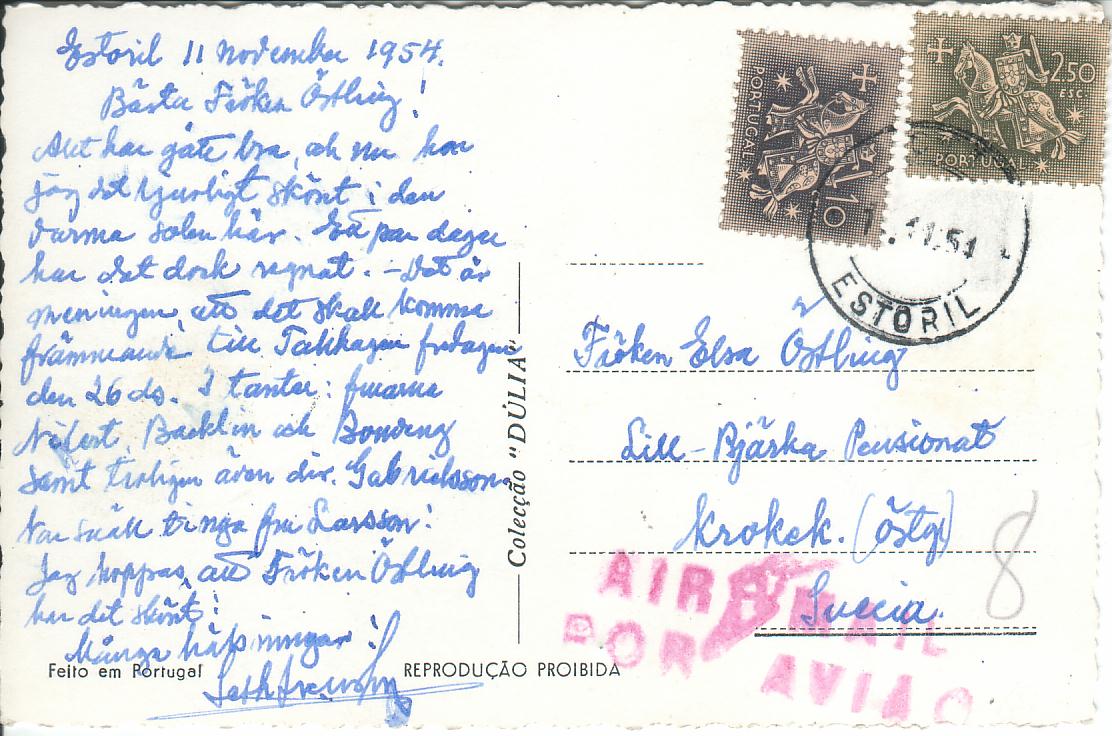 Estoril 11 november 1954.
Bästa Fröken Östling!
Allt har gått bra, och nu har
jag det ljuvligt skönt i den
varma solen här. Ett par dagar
har det dock regnat. – Det är
meningen, att det skall komma
främmande till Tallhagen fredagen
den 26 ds. 3 tanter: fruarna
Backlin och
samt troligen även dir. Gabrielsson.
Var snäll ring fru Larsson!
Jag hoppas, att Fröken Östling
har det skönt!
Många hälsningar!
Feito em Portugal
REPRODUÇÃO PROIBIDA
Colecção "DÚLIA"
PORTUGAL 10
2$50 ESC.
PORTUGAL
11.54
ESTORIL
Fröken Elsa Östling
Lill-Bjärka Pensionat
Krokek. (Östg)
Suecia.
8
AIR MAIL
POR AVIÃO